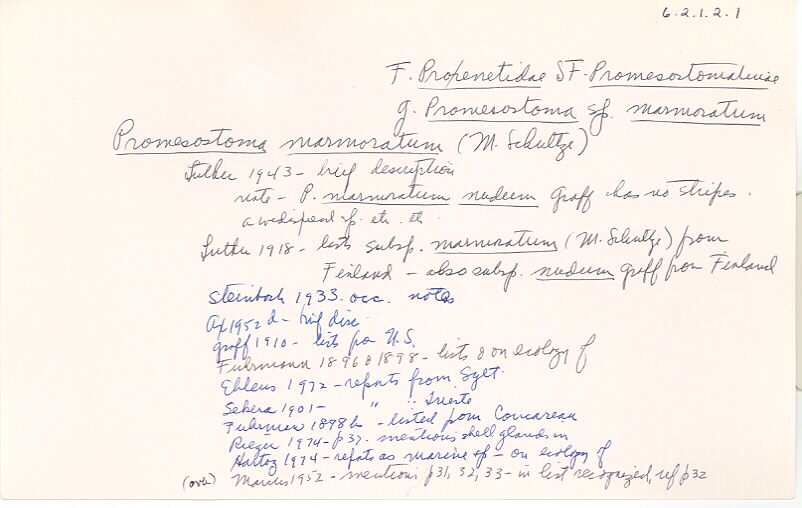 6.2.1.2.1
F. Propenetidae SF. Promesostomatinae
g. Promesostoma sp. marmoratum
Promesostoma marmoratum (M. Schultze)
Luther 1943 - brief description
note - P. marmoratum nudum Graff has no stripes.
a widespread sp. etc. etc.
Luther 1918 - lists subsp. marmoratum (M. Schultze) from
Finland - also subsp. nudum Graff from Finland
Steinböck 1933. occ. notes
Ax 1952d - brief disc.
Graff 1910 - lists for U.S.
Fuhrmann 1896 & 1898 - lists & on ecology of
Ehlers 1972 - reports from Sylt
Sekera 1901 - " " Trieste
Fuhrman 1898b - listed from Concarneau
Rieger 1974 - p37. mentions shell glands in
Hartog 1974 - repots as marine sp - on ecology of
(over) Marcus 1952 - mentions p31, 32, 33 - in list recognized, ref p32